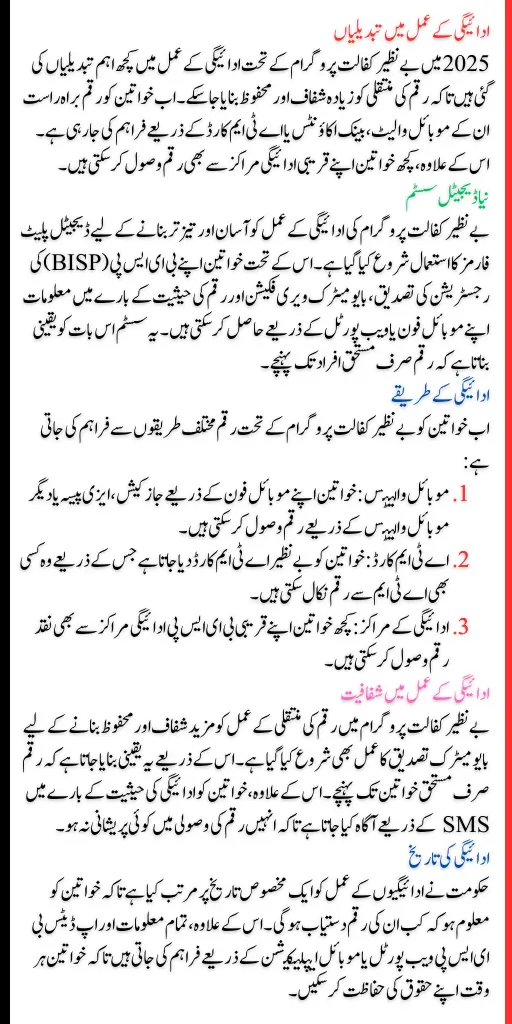 ادائیگی کے عمل میں تبدیلیاں
2025 میں بے نظیر کفالت پروگرام کے تحت ادائیگی کے عمل میں کچھ اہم تبدیلیاں کی
گئی ہیں تاکہ رقم کی منتقلی کو زیادہ شفاف اور محفوظ بنایا جا سکے۔ اب خواتین کو رقم براہ راست
ان کے موبائل والیٹ، بینک اکاؤنٹس یا اے ٹی ایم کارڈ کے ذریعے فراہم کی جا رہی ہے۔
اس کے علاوہ، کچھ خواتین اپنے قریبی ادائیگی مراکز سے بھی رقم وصول کر سکتی ہیں۔
نیا ڈیجیٹل سسٹم
بے نظیر کفالت پروگرام کی ادائیگی کے عمل کو آسان اور تیز تر بنانے کے لیے ڈیجیٹل پلیٹ
فارمز کا استعمال شروع کیا گیا ہے۔ اس کے تحت خواتین اپنے بی ای ایس پی (BISP) کی
رجسٹریشن کی تصدیق، بایو میٹرک ویری فکیشن اور رقم کی حیثیت کے بارے میں معلومات
اپنے موبائل فون یا ویب پورٹل کے ذریعے حاصل کر سکتی ہیں۔ یہ سسٹم اس بات کو یقینی
بناتا ہے کہ رقم صرف مستحق افراد تک پہنچے۔
ادائیگی کے طریقے
اب خواتین کو بے نظیر کفالت پروگرام کے تحت رقم مختلف طریقوں سے فراہم کی جاتی
ہے:
1. موبائل والیٹس: خواتین اپنے موبائل فون کے ذریعے جاز کیش، ایزی پیسہ یا دیگر
موبائل والیٹس کے ذریعے رقم وصول کر سکتی ہیں۔
2. اے ٹی ایم کارڈ: خواتین کو بے نظیر اے ٹی ایم کارڈ دیا جاتا ہے جس کے ذریعے وہ کسی
بھی اے ٹی ایم سے رقم نکال سکتی ہیں۔
3. ادائیگی کے مراکز: کچھ خواتین اپنے قریبی بی ای ایس پی ادائیگی مراکز سے بھی نقد
رقم وصول کر سکتی ہیں۔
ادائیگی کے عمل میں شفافیت
بے نظیر کفالت پروگرام میں رقم کی منتقلی کے عمل کو مزید شفاف اور محفوظ بنانے کے لیے
بایو میٹرک تصدیق کا عمل بھی شروع کیا گیا ہے۔ اس کے ذریعے یہ یقینی بنایا جاتا ہے کہ رقم
صرف مستحق خواتین تک پہنچے۔ اس کے علاوہ، خواتین کو ادائیگی کی حیثیت کے بارے میں
SMS کے ذریعے آگاہ کیا جاتا ہے تاکہ انہیں رقم کی وصولی میں کوئی پریشانی نہ ہو۔
ادائیگی کی تاریخ
حکومت نے ادائیگیوں کے عمل کو ایک مخصوص تاریخ پر مرتب کیا ہے تاکہ خواتین کو
معلوم ہو کہ کب ان کی رقم دستیاب ہوگی۔ اس کے علاوہ، تمام معلومات اور اپ ڈیٹس بی
ای ایس پی ویب پورٹل یا موبائل ایپلیکیشن کے ذریعے فراہم کی جاتی ہیں تاکہ خواتین ہر
وقت اپنے حقوق کی حفاظت کر سکیں۔